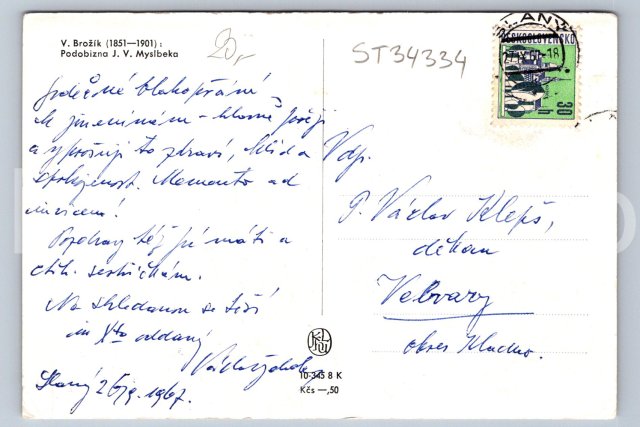 V. Brožík (1851—1901):
Podobizna J. V. Myslbeka
20,-
ST34334
SLANÝ
ČESKOSLOVENSKO
30 h
Srdečné blahopřání
k jmeninám – hlavně přeji
a vyprošuji to zdraví, klid a
spokojenost. Memento ad
invicem!
Pozdravy též pí máti a
ctih. sestřičkám.
Na shledanou se těší
in Xto oddaný
Václav
Slaný 1967.
Vdp.
P. Václav Klepš,
děkan
Velvary
okres Kladno.
10-345 8 K
Kčs —,50